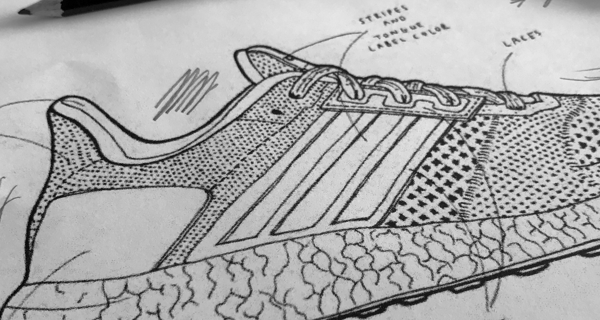 STRIPES
AND
TONGUE
LABEL COLOR
LACES